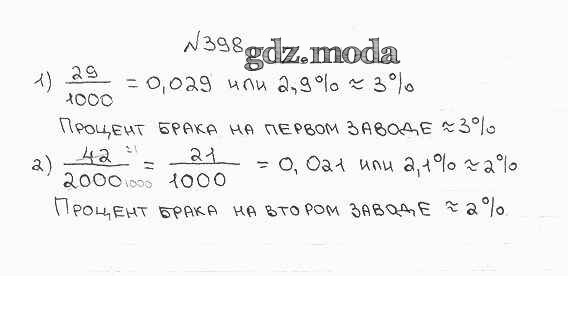 №398 gdz.moda
1) 29/1000 = 0,029 или 2,9% ≈ 3%
Процент брака на первом заводе ≈3%
2) 42 21/2000 1000 = 21/1000 = 0,021 или 2,1% ≈ 2%
Процент брака на втором заводе ≈ 2%